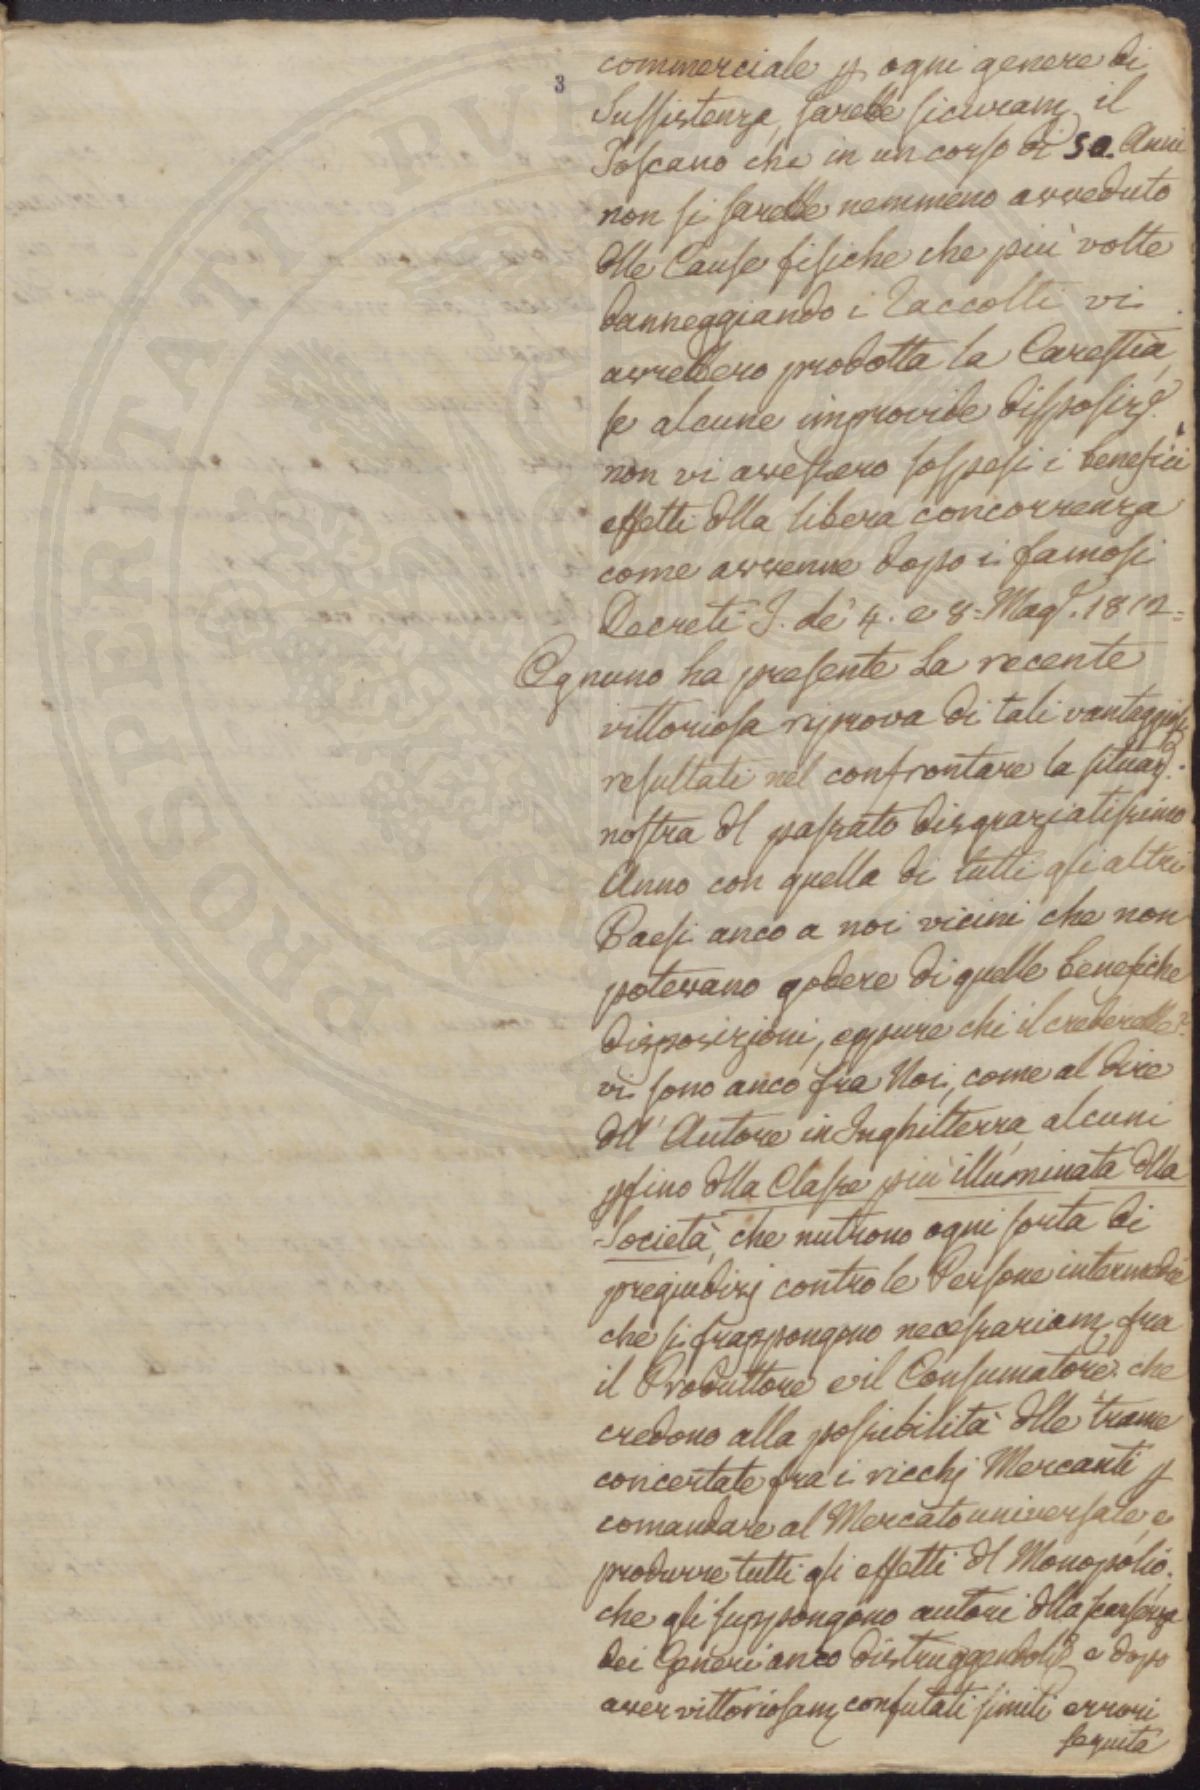 3
commerciale p ogni genere di
Sussistenza, sarebbe sicuram. il
Toscano che in un corso di 50. Anni
non si sarebbe nemmeno avveduto
dlle Cause fisiche che più volte
danneggiando i Raccolti vi
avrebbero prodotta la Carestia,
se alcune improvide disposize.
non vi avessero sospesi i benefici
effetti dlla libera concorrenza
come avvenne dopo i famosi
Decreti I. de' 4. e 8. Mago. 1812=
Ognuno ha presente la recente
vittoriosa riprova di tali vantaggiosi
resultati nel confrontare la situaze.
nostra dl passato disgraziatissimo
Anno con quella di tutti gli altri
Paesi anco a noi vicini che non
potevano godere di quelle benefiche
disposizioni, eppure chi il crederebbe?
vi sono anco fra Noi, come al dire
dll' Autore in Inghilterra, alcuni
pfino dlla Classe più illuminata dlla
Società, che nutrono ogni sorta di
pregiudizj contro le Persone intermedie
che si frappongono necessariam. fra
il Produttore e il Consumatore: che
credono alla possibilità dlle trame
concertate fra i ricchj Mercanti p
comandare al Mercato universale, e
produrre tutti gli effetti dl Monopolio;
che gli suppongono autori dlla scarsezza
dei Generi anco distruggendoli, e dopo
aver vittoriosam. confutati simili errori
seguita
PROSPERITATI PVB